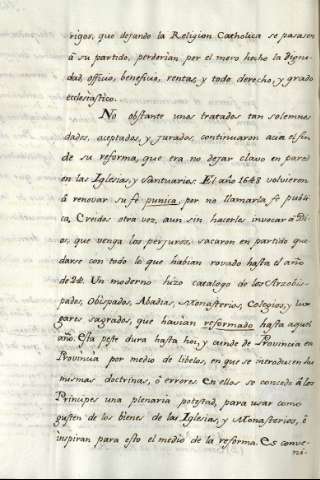 rigos, que dejando la Religion Catholica se pasasen
à su partido, perderian por el mero hecho la Digni-
dad, officio, beneficio, rentas, y todo derecho, y grado
ecclesiastico.
No obstante unos tratados tan solemne
dados, aceptados, y jurados, continuaron acia el fin
de su reforma, que era no dejar clavo en pared
en las Iglesias, y Santuarios. El año 1648 volvieron
à renovar su fè punica, por no llamarla fè publi-
ca, Creidos otra vez, aun sin hacerles invocar à Di-
os, que venga los perjuros, sacaron en partido que-
darse con todo lo que habian rovado hasta el año
de 24. Un moderno hizo catalogo de los Arzobis-
pados, Obispados, Abadias, Monasterios, Colegios, y lu-
gares sagrados, que havian reformado hasta aquel
año. Esta peste dura hasta hoi, y cunde de Provincia en
Provincia por medio de libelos, en que se introducen las
mismas doctrinas, ò errores. En ellos se concede à los
Principes una plenaria potestad, para usar como
gusten de los bienes de las Iglesias, y Monasterios, è
inspiran para esto el medio de la reforma. Es conve-